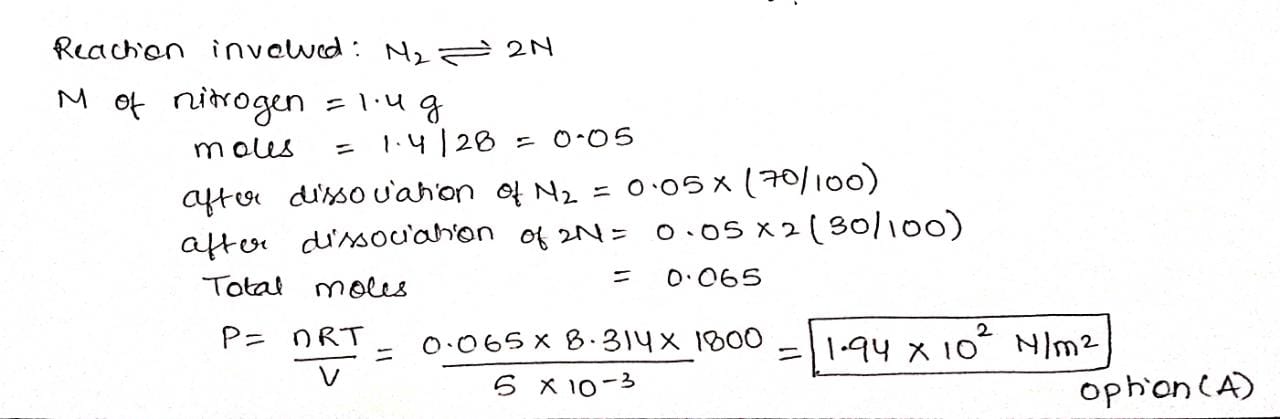 Reaction involved: N₂ ⇌ 2N
M of nitrogen = 1.4 g
moles = 1.4 | 28 = 0.05
after dissociation of N₂ = 0.05 x (70/100)
after dissociation of 2N = 0.05 x 2 (30/100)
Total moles = 0.065
P = nRT / V = 0.065 x 8.314 x 1800 / 5 x 10⁻³ = 1.94 x 10² N/m²
option (A)